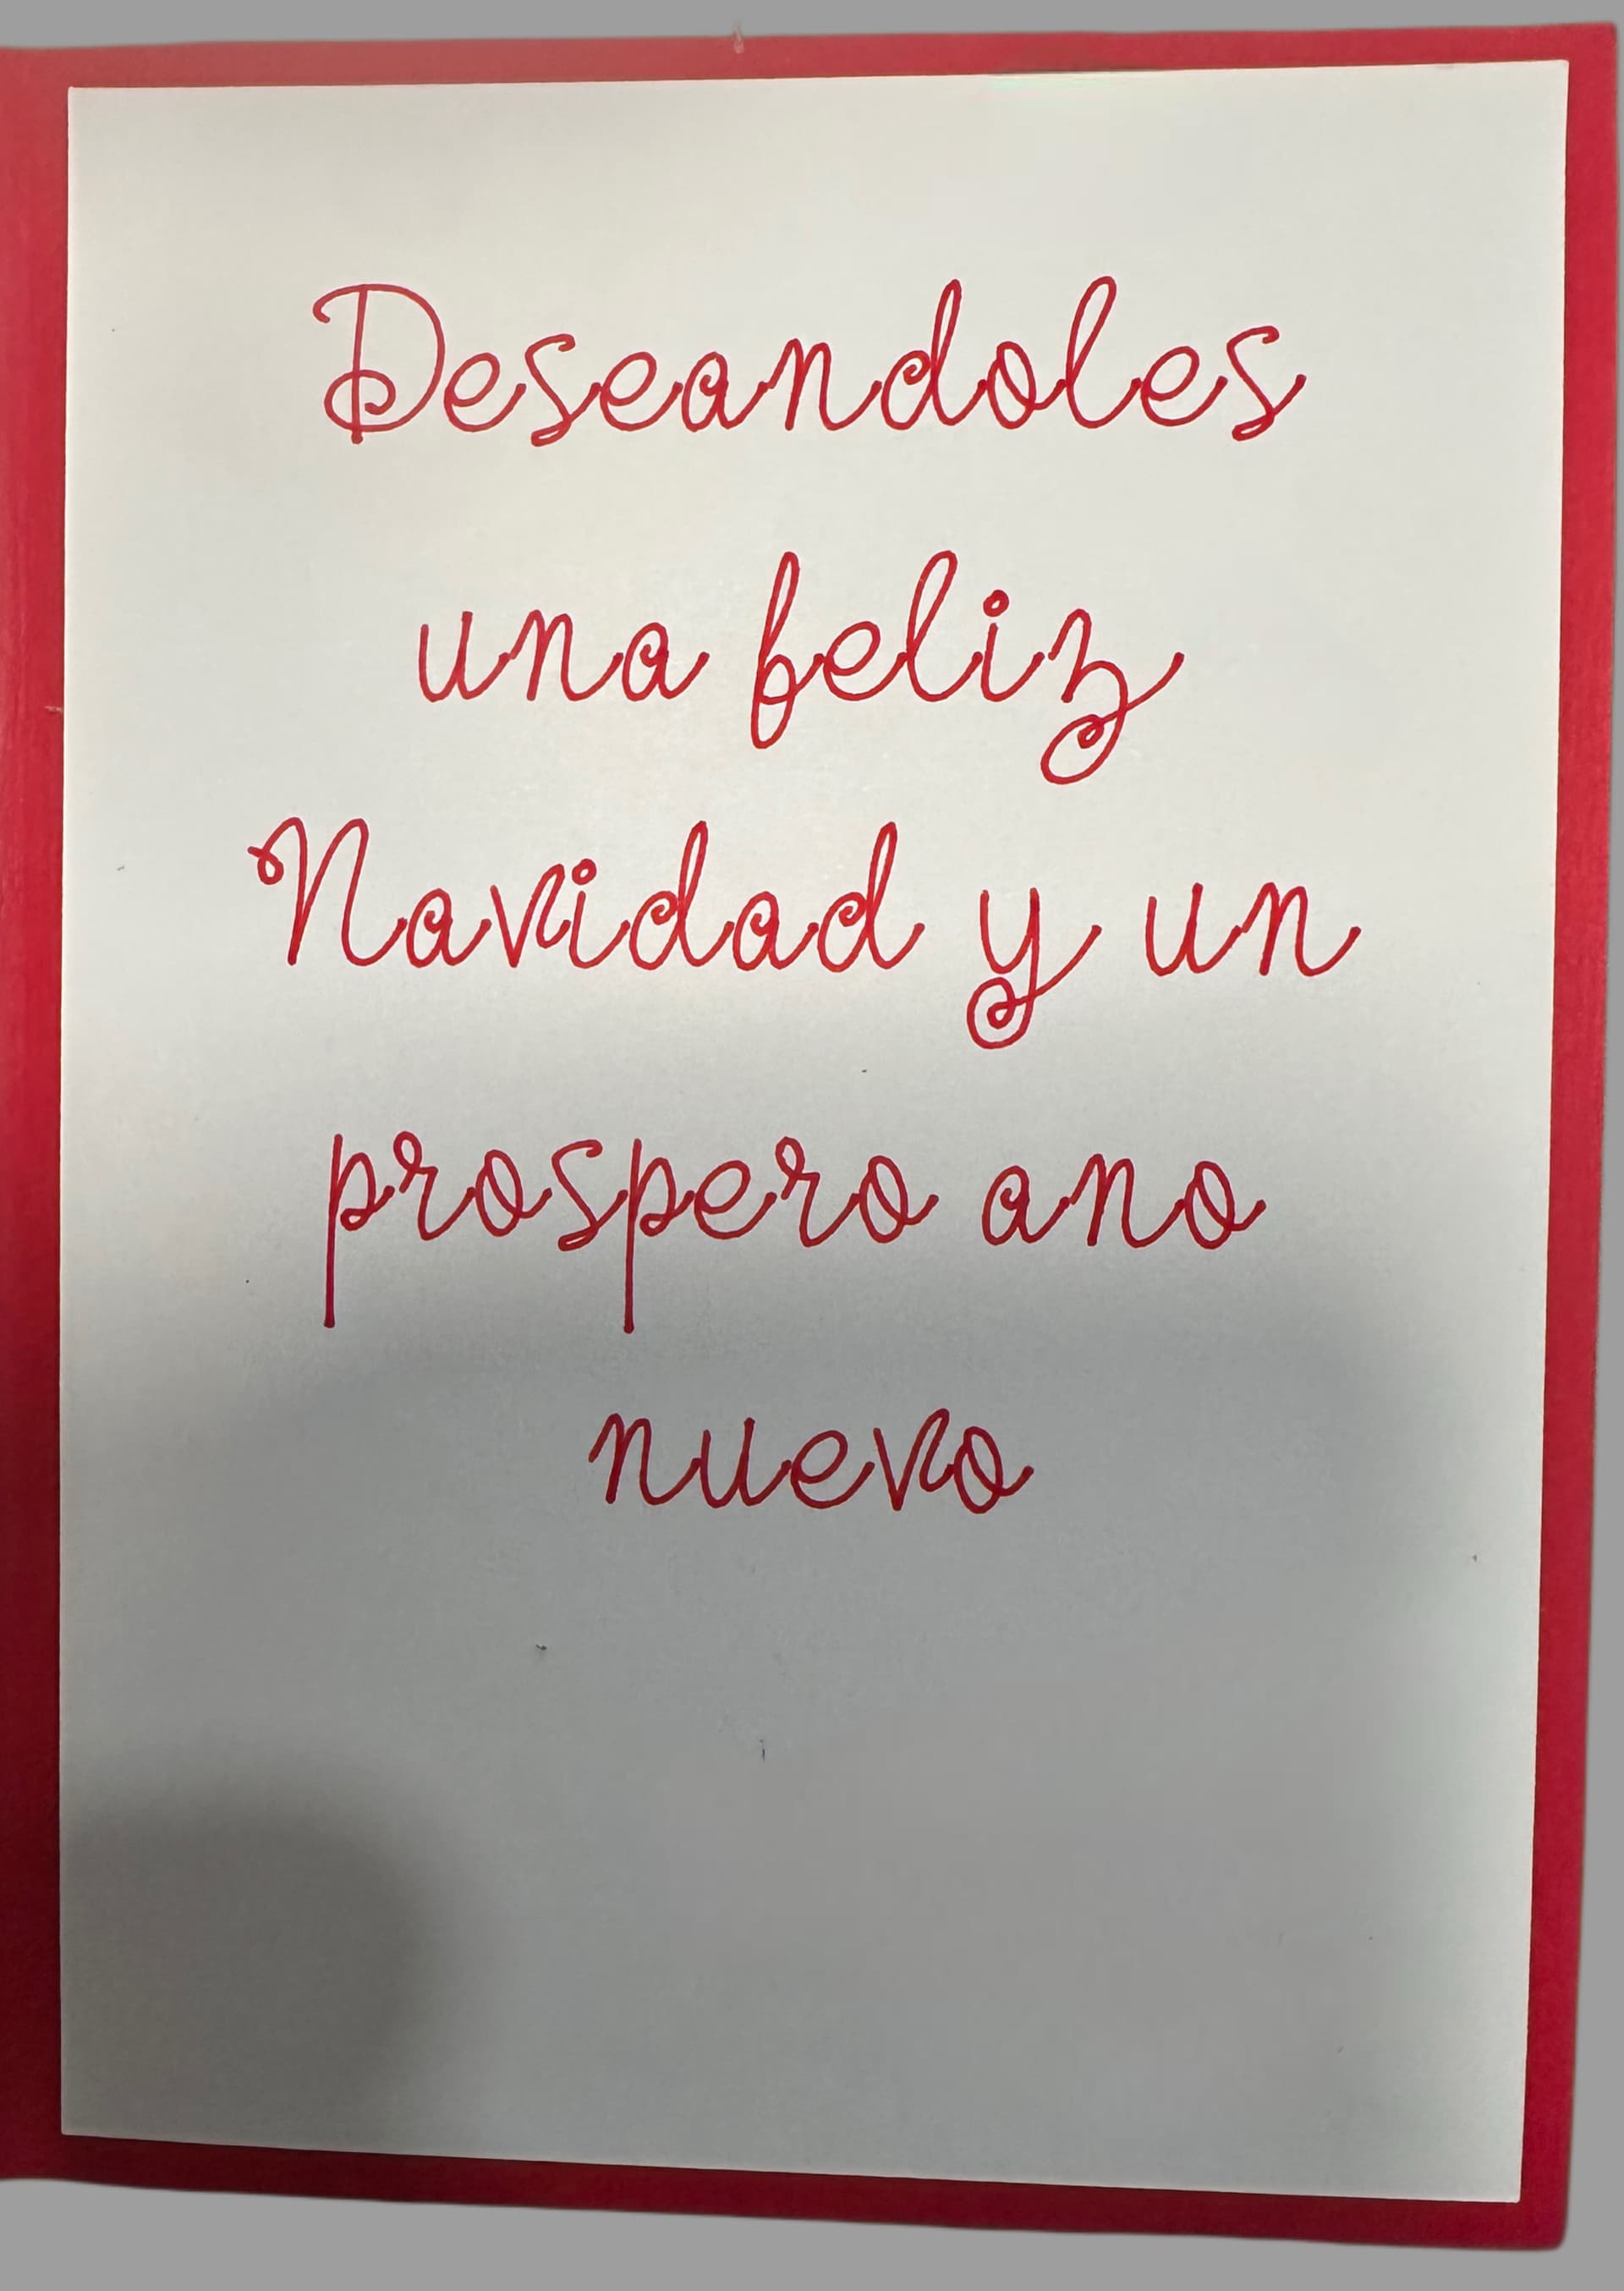 Deseandoles
una feliz
Navidad y un
prospero ano
nuevo